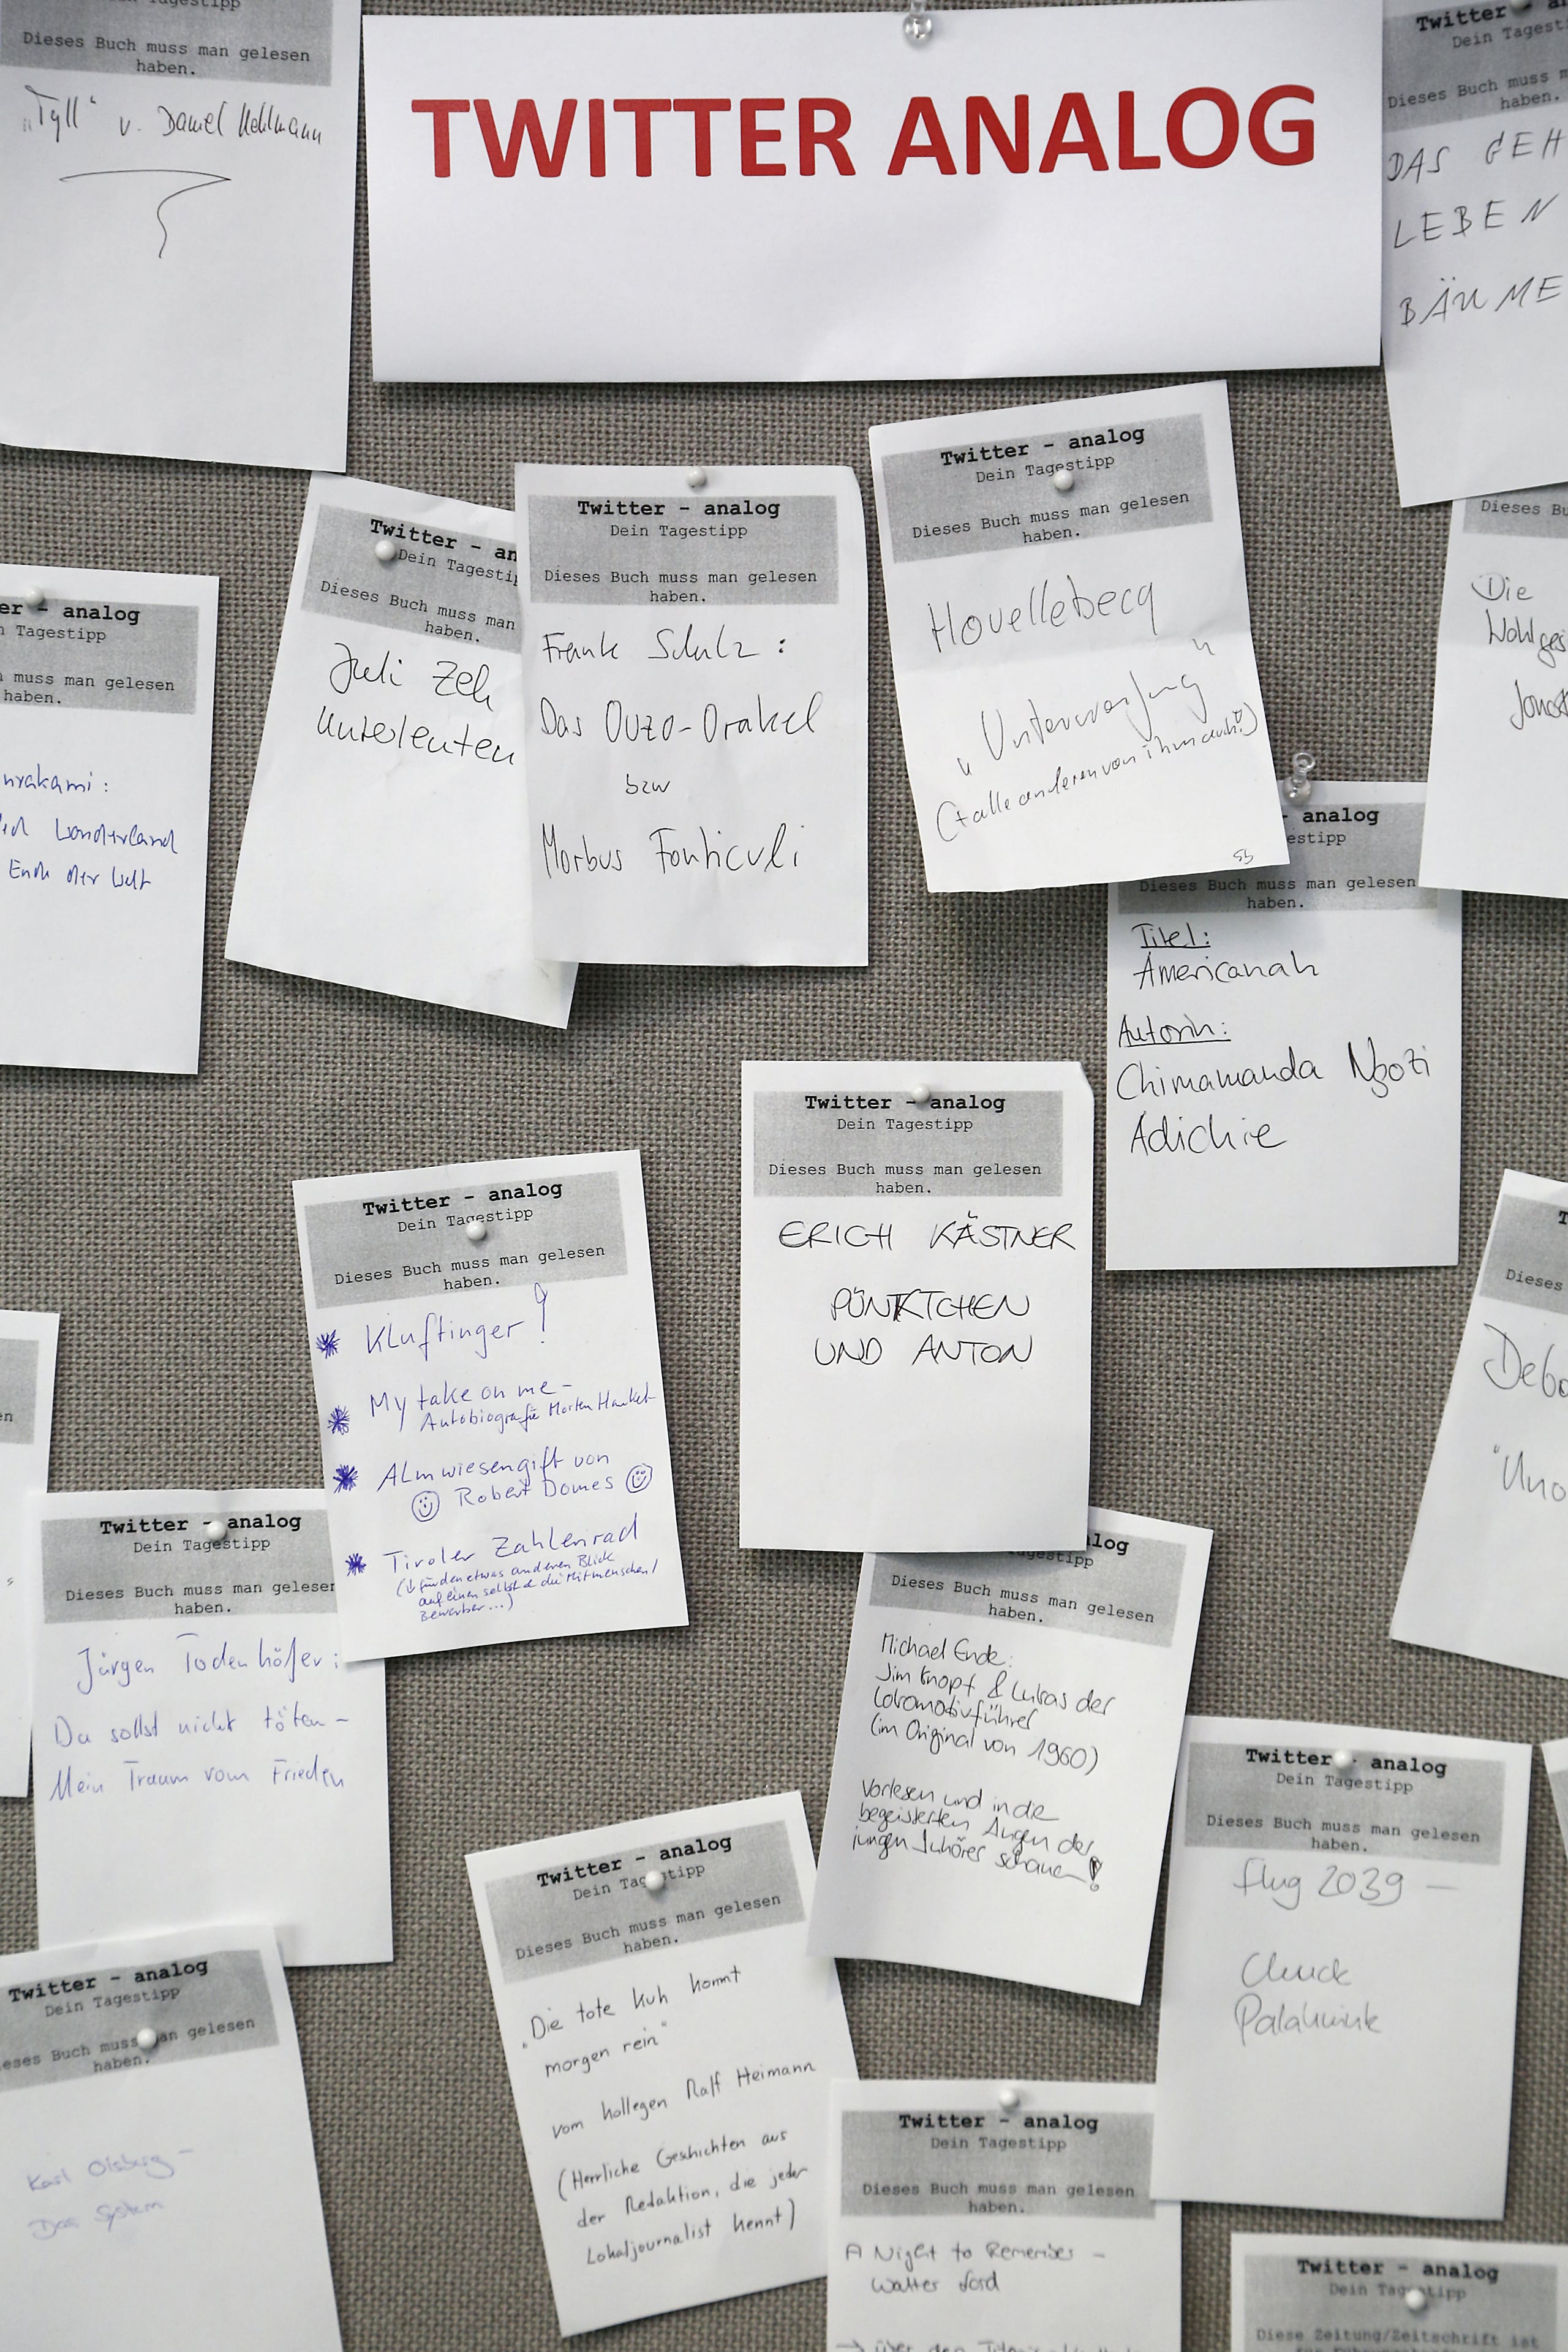 Tagestipp
Dieses Buch muss man gelesen
haben.
"Tyll" v. Daniel Kehlmann
TWITTER ANALOG
Twitter
Dein
Dieses Buch muss
haben.
DAS GEH
LEBEN
BÄUME
er - analog
Tagestipp
muss man gelesen
haben.
urakami:
Wonderland
Ende der Welt
Twitter - an
Dein Tagestip
Dieses Buch muss man
haben.
Juli Zeh
Unterleuten
Twitter - analog
Dein Tagestipp
Dieses Buch muss man gelesen
haben.
Frank Schulz:
Das Ouzo-Orakel
bzw
Morbus Fonticuli
Twitter - analog
Dein Tagestipp
Dieses Buch muss man gelesen
haben.
Houellebecq
"Unterwerfung"
(+ alle anderen von ihm auch!)
Dieses Bu
Die
Wohlges
Jonat
- analog
estipp
Dieses Buch muss man gelesen
haben.
Titel:
Americanah
Autorin:
Chimamanda Ngozi
Adichie
Twitter - analog
Dein Tagestipp
Dieses Buch muss man gelesen
haben.
Kluftinger!
My take on me -
Autobiografie Morten Harket
Almwiesengift von
Robert Domes
Tiroler Zahlenrad
(für den etwas anderen Blick
auf einen selbst & die Mitmenschen/
Bewerber...)
Twitter - analog
Dein Tagestipp
Dieses Buch muss man gelesen
haben.
ERICH KÄSTNER
PÜNKTCHEN
UND ANTON
Dieses
Debo
"Uno
Twitter - analog
Dein Tagestipp
Dieses Buch muss man gelesen
haben.
Jürgen Todenhöfer:
Du sollst nicht töten -
Mein Traum vom Frieden
alog
agestipp
Dieses Buch muss man gelesen
haben.
Michael Ende:
Jim Knopf & Lukas der
Lokomotivführer
(im Original von 1960)
Vorlesen und in die
begeisterten Augen der
jungen Zuhörer schauen!
Twitter - analog
Dein Tagestipp
Dieses Buch muss man gelesen
haben.
Flug 2039 -
Chuck
Palahniuk
Twitter - analog
Dein Tagestipp
Dieses Buch muss man gelesen
haben.
"Die tote Kuh kommt
morgen rein"
vom Kollegen Ralf Heimann
(Herrliche Geschichten aus
der Redaktion, die jeder
Lokaljournalist kennt)
Twitter - analog
Dein Tagestipp
eses Buch muss man gelesen
haben.
Karl Olsberg -
Das System
Twitter - analog
Dein Tagestipp
Dieses Buch muss man gelesen
haben.
A Night to Remember -
Walter Lord
→ über den
Twitter - analog
Dein Tagestipp
Diese Zeitung/Zeitschrift ist